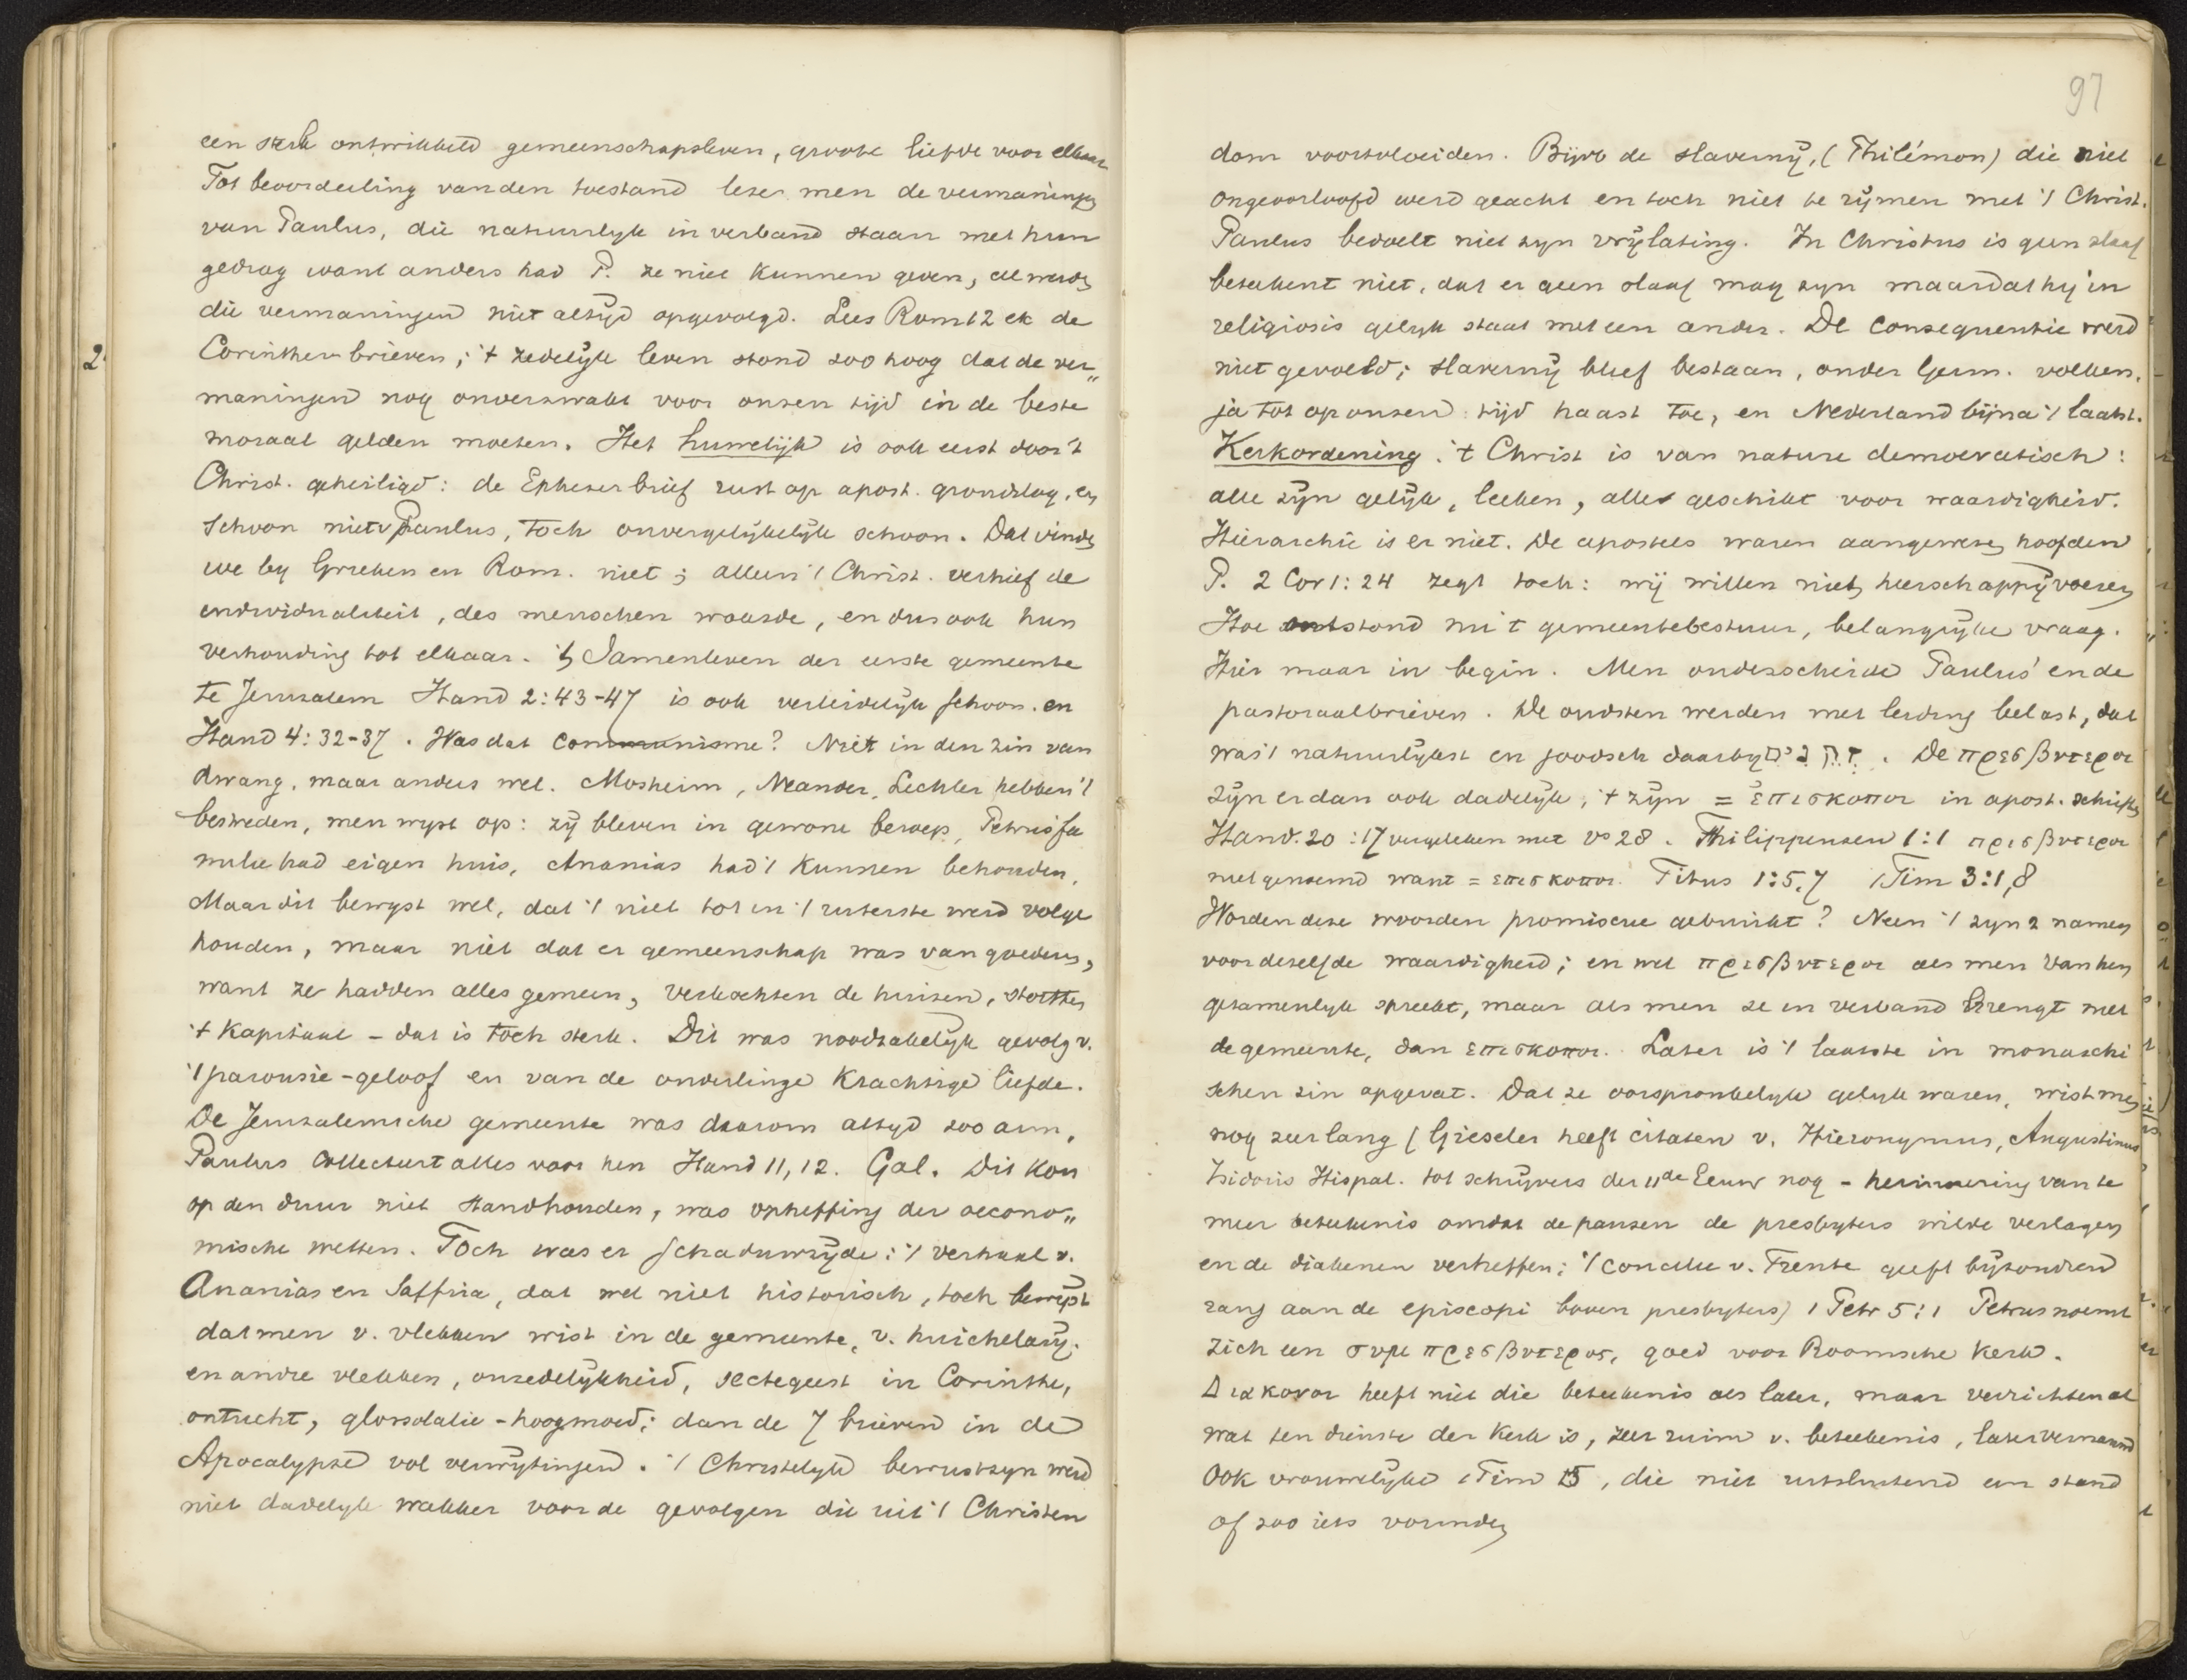 een sterk ontwikkeld gemeenschapsleven, groote liefde voor elkaar
Tot beoordeeling van den toestand leze men de vermaningen
van Paulus, die natuurlyk in verband staan met hun
gedrag want anders had P. ze niet kunnen geven, al werden
die vermaningen niet altyd opgevolgd. Lees Rom 12 ek de
2
Corinther brieven; 't zedelyk leven stond zoo hoog dat de ver„
maningen nog onverzwakt voor onzen tijd in de beste
moraal gelden moeten. Het huwelijk is ook eerst door 't
Christ. geheiligd: de Epheser brief rust op apost. grondslag, en
schoon niet v Paulus, toch onvergelykelyk schoon. Dat vinden
we by Grieken en Rom. niet; alleen 't Christ. verhief de
individualiteit, des menschen waarde, en dus ook hun
verhouding tot elkaar. 't Samenleven der eerste gemeente
te Jeruzalem Hand 2:43-47 is ook verleidelyk schoon. en
Hand 4:32-37. Was dat communisme? Niet in den zin van
dwang, maar anders wel. Mosheim, Neander, Lechler hebben 't
bestreden, men wyst op: zy bleven in gewone beroep, Petrus' fa
milie had eigen huis, Ananias had 't kunnen behouden,
Maar dit bewyst wel, dat 't niet tot in 't uiterste werd volge
houden, maar niet dat er gemeenschap was van goederen,
want ze hadden alles gemeen, verkochten de huizen, stortten
't kapitaal - dat is toch sterk. Dit was noodzakelyk gevolg v.
't parousie-geloof en van de onderlinge krachtige liefde.
De Jeruzalemsche gemeente was daarom altyd zoo arm,
Paulus collecteert alles voor hen Hand 11, 12. Gal. Dit kon
op den duur niet standhouden, was opheffing der oecono„
mische wetten. Toch was er schaduwzyde: 't verhaal v.
Ananias en Saffira, dat wel niet historisch, toch bewyst
dat men v. vlekken wist in de gemeente, v. huichelary.
en andre vlekken, onzedelykheid, sectegeest in Corinthe,
ontucht, glossolalie-hoogmoed; dan de 7 brieven in de
Apocalypse vol verwytingen. 't Christelyk bewustzyn werd
niet dadelyk wakker voor de gevolgen die uit 't Christen
97
dom voortvloeiden. Bijvb de slaverny, (Philémon) die niet
ongeoorloofd werd geacht en toch niet te rymen met 't Christ.
Paulus bedoelt niet zyn vrylating. In Christus is geen slaaf
beteekent niet, dat er geen slaaf mag zyn maar dat hy in
religiosis gelyk staat met een ander. De consequentie werd
niet gevoeld; slaverny bleef bestaan, onder Germ. volken,
ja tot op onzen tijd haast toe, en Nederland bijna 't laatst.
Kerkordening: 't Christ is van nature democratisch:
alle zyn gelyk, leeken, alle geschikt voor waardigheid.
Hierarchie is er niet. De apostels waren aangewezen hoofden
P. 2 Cor 1:24 zegt toch: wij willen niet heerschappy voeren
Hoe ontstond nu 't gemeentebestuur, belangryke vraag.
Hier maar in begin. Men onderscheide Paulus' en de
pastoraalbrieven. De oudsten werden met leiding belast, dat
was 't natuurlykst en joodsch daarby זקנים. De πρεσβυτεροι
zyn er dan ook dadelyk, 't zyn = ἐπισκοποι in apost. schriften
Hand. 20:17 vergeleken met vs 28. Philippensen 1:1 πρεσβυτεροι
niet genoemd want = επισκοποι. Titus 1:5,7 1 Tim 3:1,8
Worden deze woorden promiscue gebruikt? Neen 't zyn 2 namen
voor dezelfde waardigheid; en wel πρεσβυτεροι als men van hen
gezamenlyk spreekt, maar als men ze in verband brengt met
de gemeente, dan επισκοποι. Later is 't laatste in monarchi
schen zin opgevat. Dat ze oorspronkelyk gelyk waren, wist men
nog zeer lang (Gieseler heeft citaten v. Hieronymus, Augustinus
Isidoris Hispal. tot schrijvers der 11de Eeuw nog - herinnering van te
meer beteekenis omdat de pausen de presbyters wilde verlagen
en de diakenen verheffen; 't concilie v. Trente geeft byzonderen
rang aan de episcopi boven presbyters) 1 Petr 5:1 Petrus noemt
zich een συμπρεσβυτερος, goed voor Roomsche Kerk.
Διακονοι heeft niet die beteekenis als later, maar verrichten al
wat ten dienste der Kerk is, zeer ruim v. beteekenis, later vernauwd
Ook vrouwelyke 1 Tim 5, die niet uitsluitend een stand
of zoo iets vormden